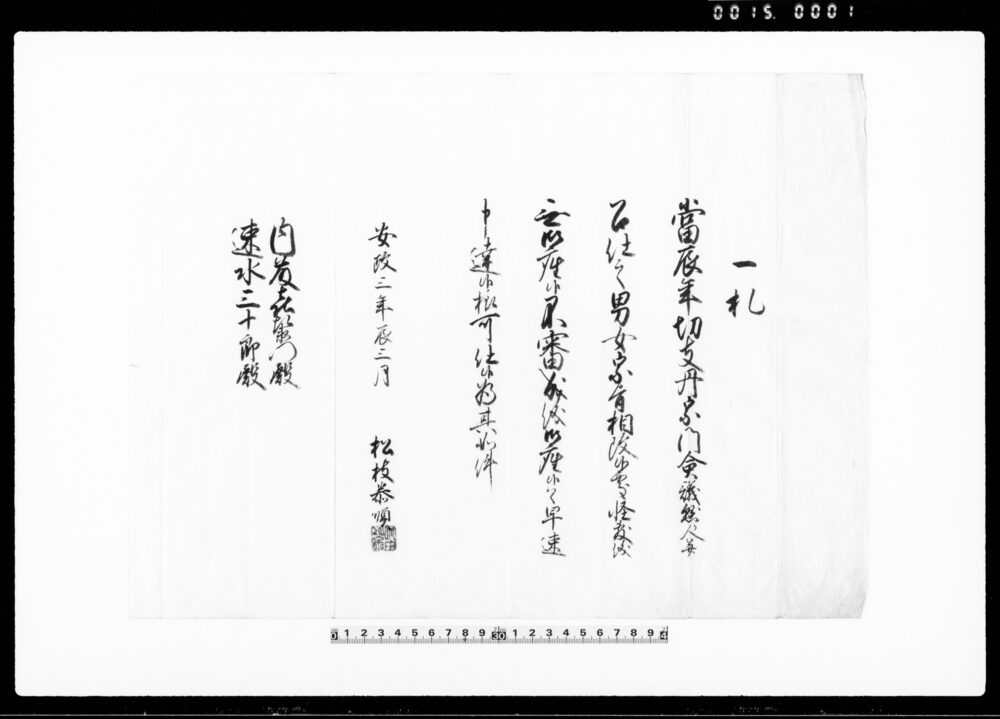 0015 0001
一札
當辰年切支丹宗門僉議ニ付
召仕之男女宗旨相改候處怪敷儀
無御座候不審成儀御座候ハヽ早速
申達候様可仕候為其如件
安政三年辰三月
松枝恭順
内藤喜兵衛門殿
速水三十郎殿
0 1 2 3 4 5 6 7 8 9 30 1 2 3 4 5 6 7 8 9 4